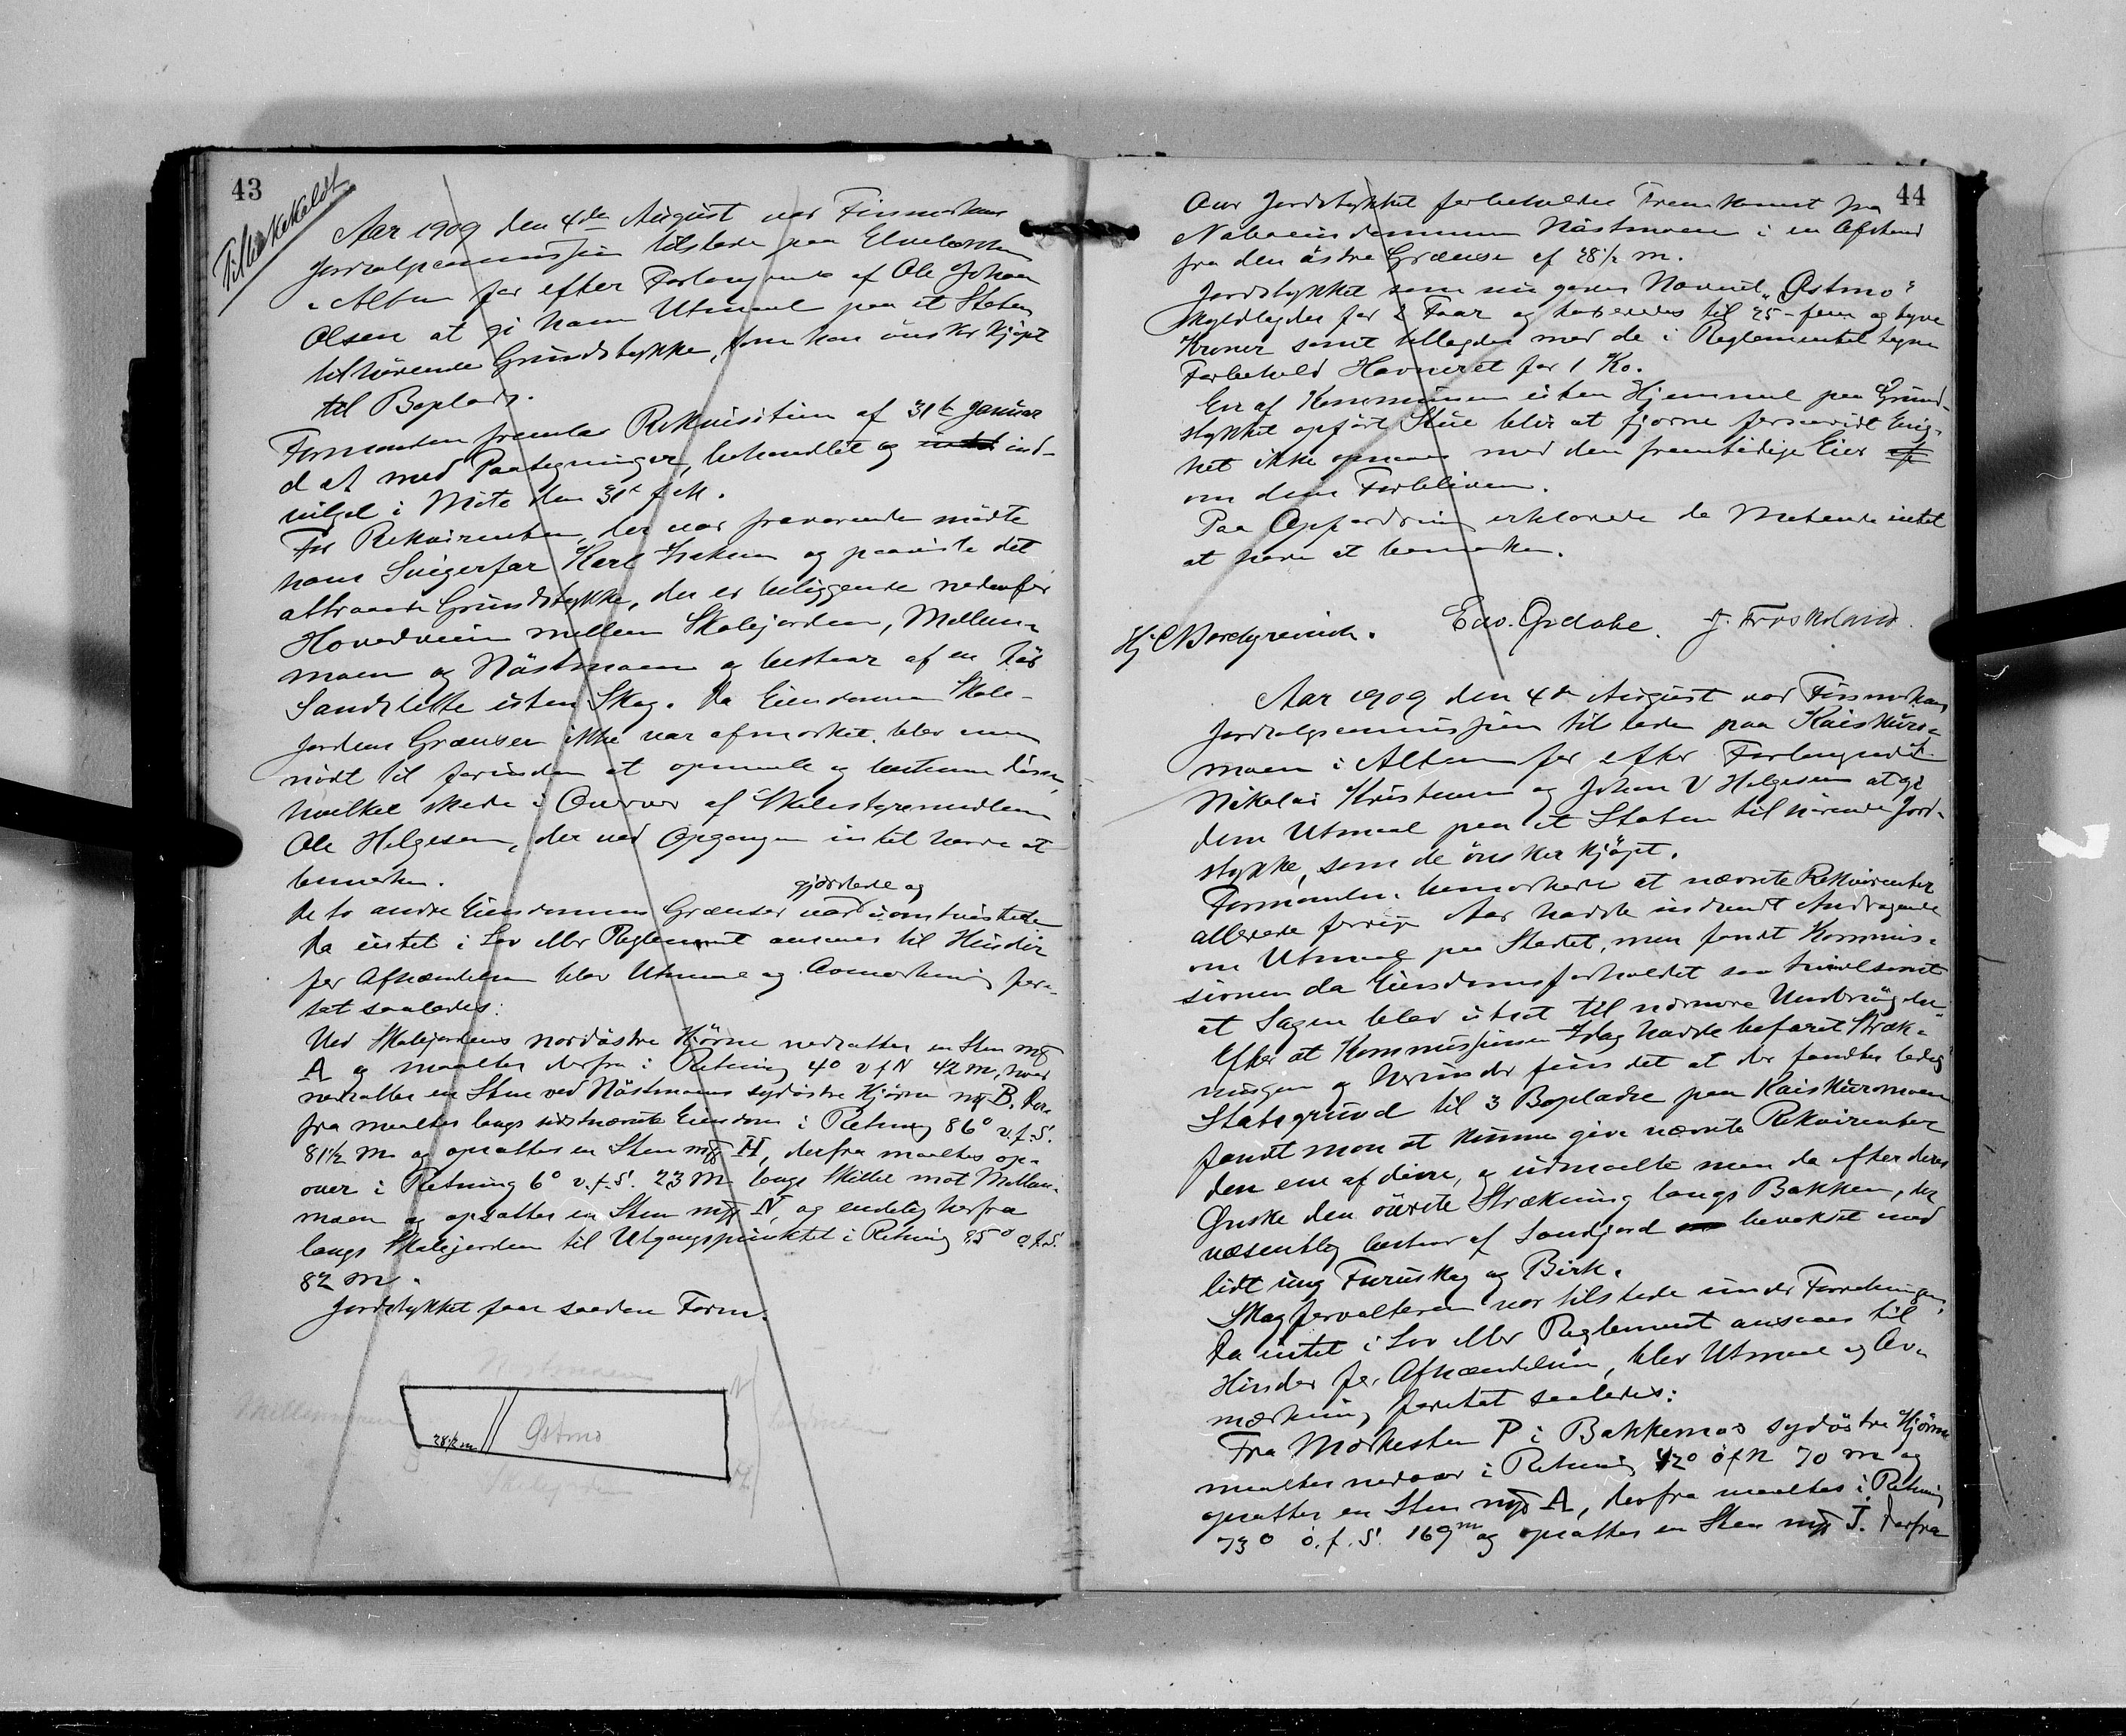 43
Tilbakekaldt
Aar 1909 den 4de August var Finmarkens
Jordsalgscommission tilstede paa Elvebakken
i Alten for efter Forlangende af Ole Johan
Olsen at gi ham Utmaal paa et Staten
tilhørende Grundstykke, som han ønsker kjøpt
til Boplads.
Formanden fremla Rekvisition af 31te Januar
d A med Paategninger, behandlet og ind-
vilget i Møte den 31te f M.
For Rekvirenten, der var fraværende mødte
hans Svigerfar Karl Isaksen og paaviste det
attraaede Grundstykke, der er beliggende nedenfor
Hovedveien mellem Skolejorden, Mellem-
moen og Næstmoen og bestaar af en tør
Sandslette uten Skog. Da Eiendommen Skole-
jordens Grænser ikke var afmerket blev man
nødt til forinden at opmaale og bestemme disse,
hvilket skede i Overvær af Skolestyremedlem
Ole Helgesen, der ved Opgangen intet havde at
bemerke.
gjærdede og
De to andre Eiendommes Grænser var uomtvistede
Da intet i Lov eller Reglement ansaaes til Hinder
for Afhændelsen blev Utmaal og Avmerkning fore-
tat saaledes:
Ved Skolejordens nordøstre Hjørne nedsattes en Sten mrkt
A og maaltes derfra i Retning 4° v f N 42 m, hvor
nedsattes en Sten ved Næstmoens sydøstre Hjørne mrkt B, der-
fra maaltes langs sidstnævnte Eiendom i Retning 86° v. f. S.
81½ m og opsattes en Sten mrkt H, derfra maaltes op-
over i Retning 6° v. f. S. 23 m langs Skillet mot Mellem-
moen og opsattes en Sten mrkt N, og endelig herfra
langs Skolejorden til Utgangspunktet i Retning 85° ø. f. S.
82 m.
Jordstykket faar saadan Form.
Mellemmoen
28½ m Østmo
Skolejorden
44
Over Jordstykket forbeholdes Fremkomst fra
Naboeiendommen Næstmoen i en Afstand
fra den østre Grænse af 28½ m.
Jordstykket som nu gaves Navnet "Østmo"
skyldlagdes for 2 Øre og taxeredes til 25 - fem og tyve
Kroner samt tillagdes med de i Reglementet tagne
Forbehold Havneret for 1 Ko.
En af Kommunen uten Hjemmel paa Grund-
stykket opført Stue blir at fjerne forsaavidt Enig-
het ikke opnaaes med den fremtidige Eier
om dens Forbliven.
Paa Opfordring erklærede de Møtende intet
at have at bemerke.
Edv. Opdahl. J. Froskeland.
Aar 1909 den 4de August var Finmarkens
Jordsalgscommission tilstede paa Kaiskuro-
moen i Alten for efter Forlangende af
Nikolai Kristensen og Johan V Helgesen at gi
dem Utmaal paa et Staten tilhørende Jord-
stykke, som de ønsker kjøpt.
Formanden bemerkede at nævnte Rekvirenter
allerede forrige Aar havde indsendt Andragende
om Utmaal paa Stedet, men fandt Kommis-
sionen da Eiendomsforholdet saa tvilsomt
at Sagen blev utsat til nærmere Undersøgelse.
Efter at Kommissionen Idag havde befaret Stræk-
ningen og herunder fundet at der fandtes ledig
Statsgrund til 3 Bopladse paa Kaiskuromoen
fandt man at kunne give nævnte Rekvirenter
den ene af disse, og utmaalte man da efter deres
Ønske den øverste Strækning langs Bakken, der
væsentlig bestaar af Sandjord bevokset med
lidt ung Furuskog og Birk.
Skogforvalteren var tilstede under Forretningen.
Da intet i Lov eller Reglement ansaaes til
Hinder for Afhændelsen, blev Utmaal og Av-
merkning foretat saaledes:
Fra Merkesten P i Bakkemos sydøstre Hjørne
maaltes nedover i Retning 42° ø f N 70 m og
opsattes en Sten mrkt A, derfra maaltes i Retning
73° ø. f. S. 169 m og opsattes en Sten mrkt J. Derfra